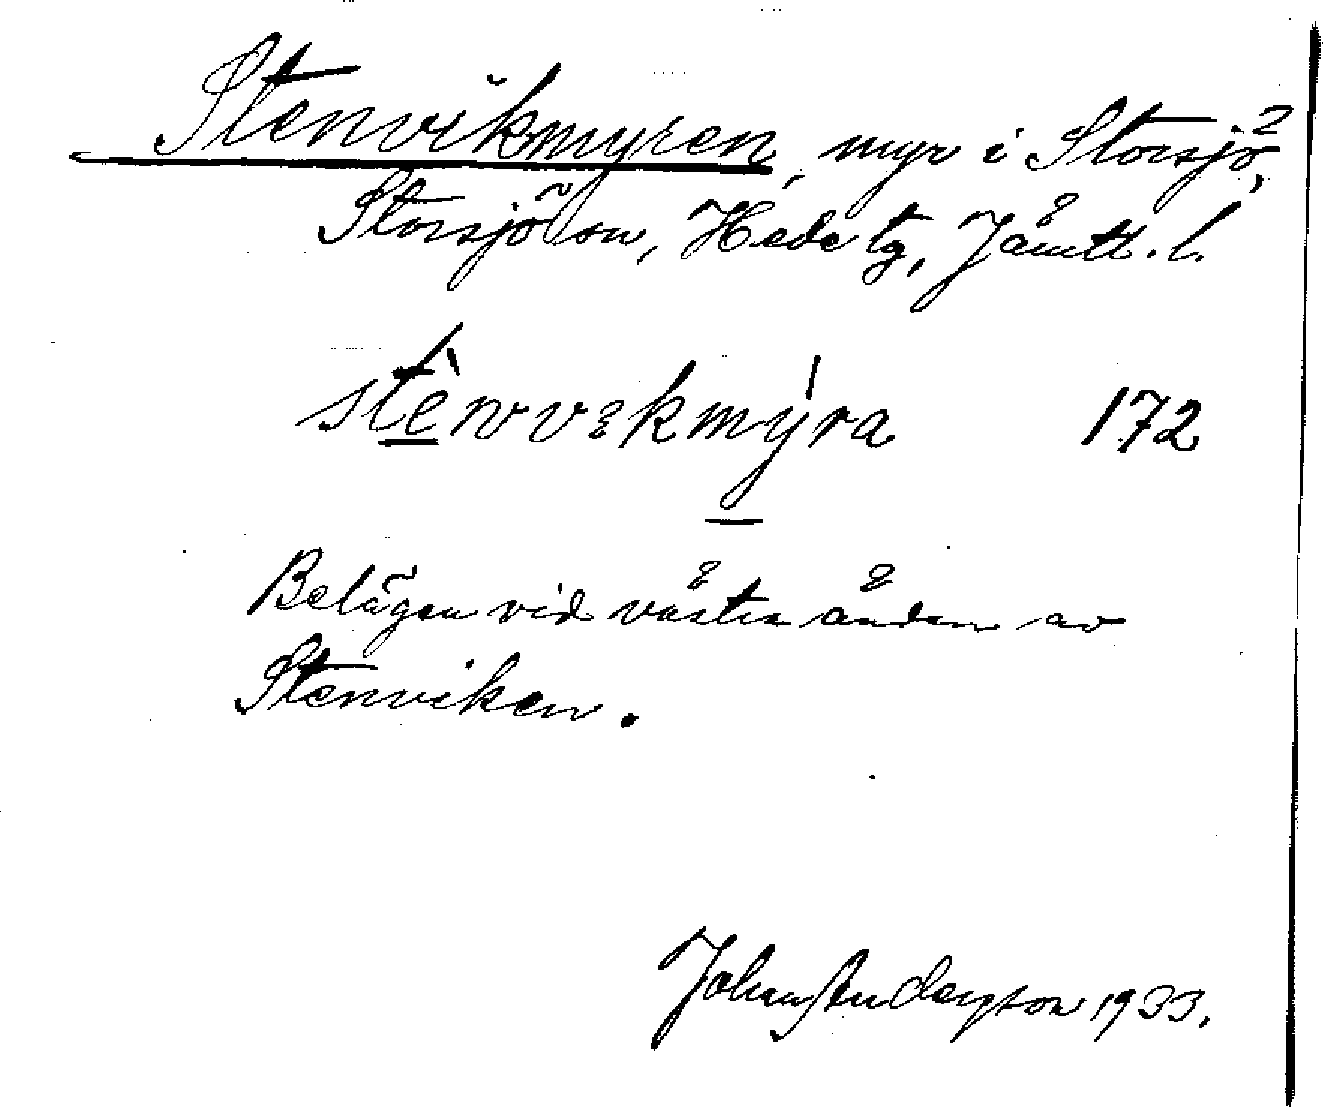 Stenvikmyren, myr i Storsjö,
Storsjö sn, Hede tg, Jämtl. l.
stènvikmýra 172
Belägen vid västra änden av
Stenviken.
Johan Anderson 1933.